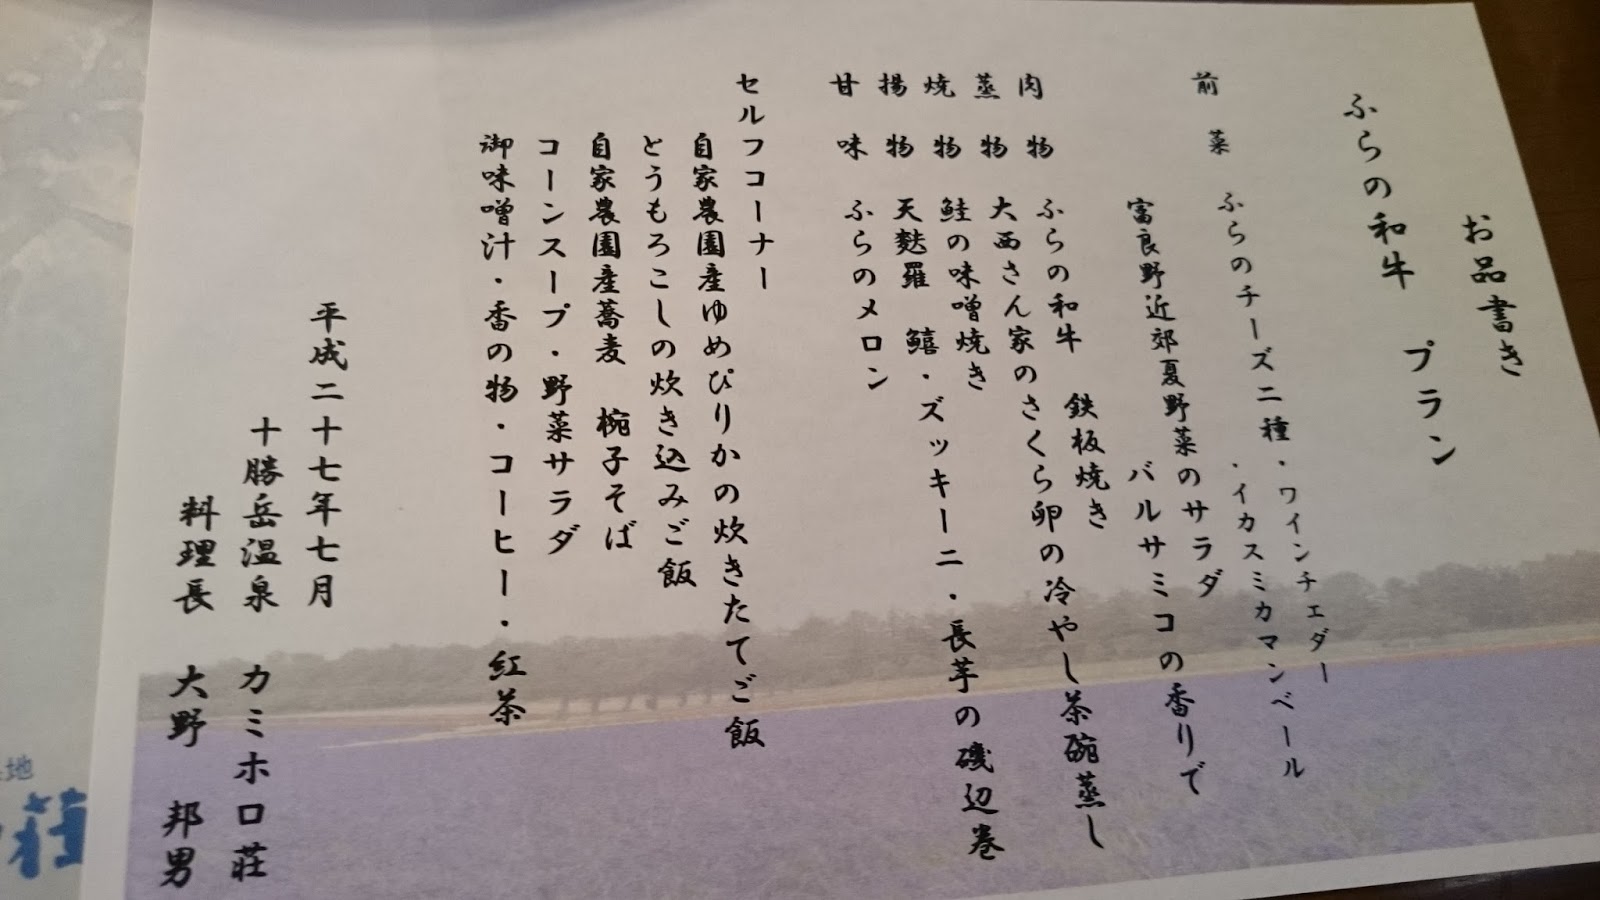 お品書き
ふらの和牛　プラン
前菜　ふらのチーズ二種・ワインチェダー
・イカスミカマンベール
富良野近郊夏野菜のサラダ
バルサミコの香りで
肉物　ふらの和牛　鉄板焼き
蒸物　大西さん家のさくら卵の冷やし茶碗蒸し
焼物　鮭の味噌焼き
揚物　天麩羅　鱚・ズッキーニ・長芋の磯辺巻
甘味　ふらのメロン
セルフコーナー
自家農園産ゆめぴりかの炊きたてご飯
とうもろこしの炊き込みご飯
自家農園産蕎麦　椀子そば
コーンスープ・野菜サラダ
御味噌汁・香の物・コーヒー・紅茶
平成二十七年七月
十勝岳温泉　カミホロ荘
料理長　大野　邦男
地
荘